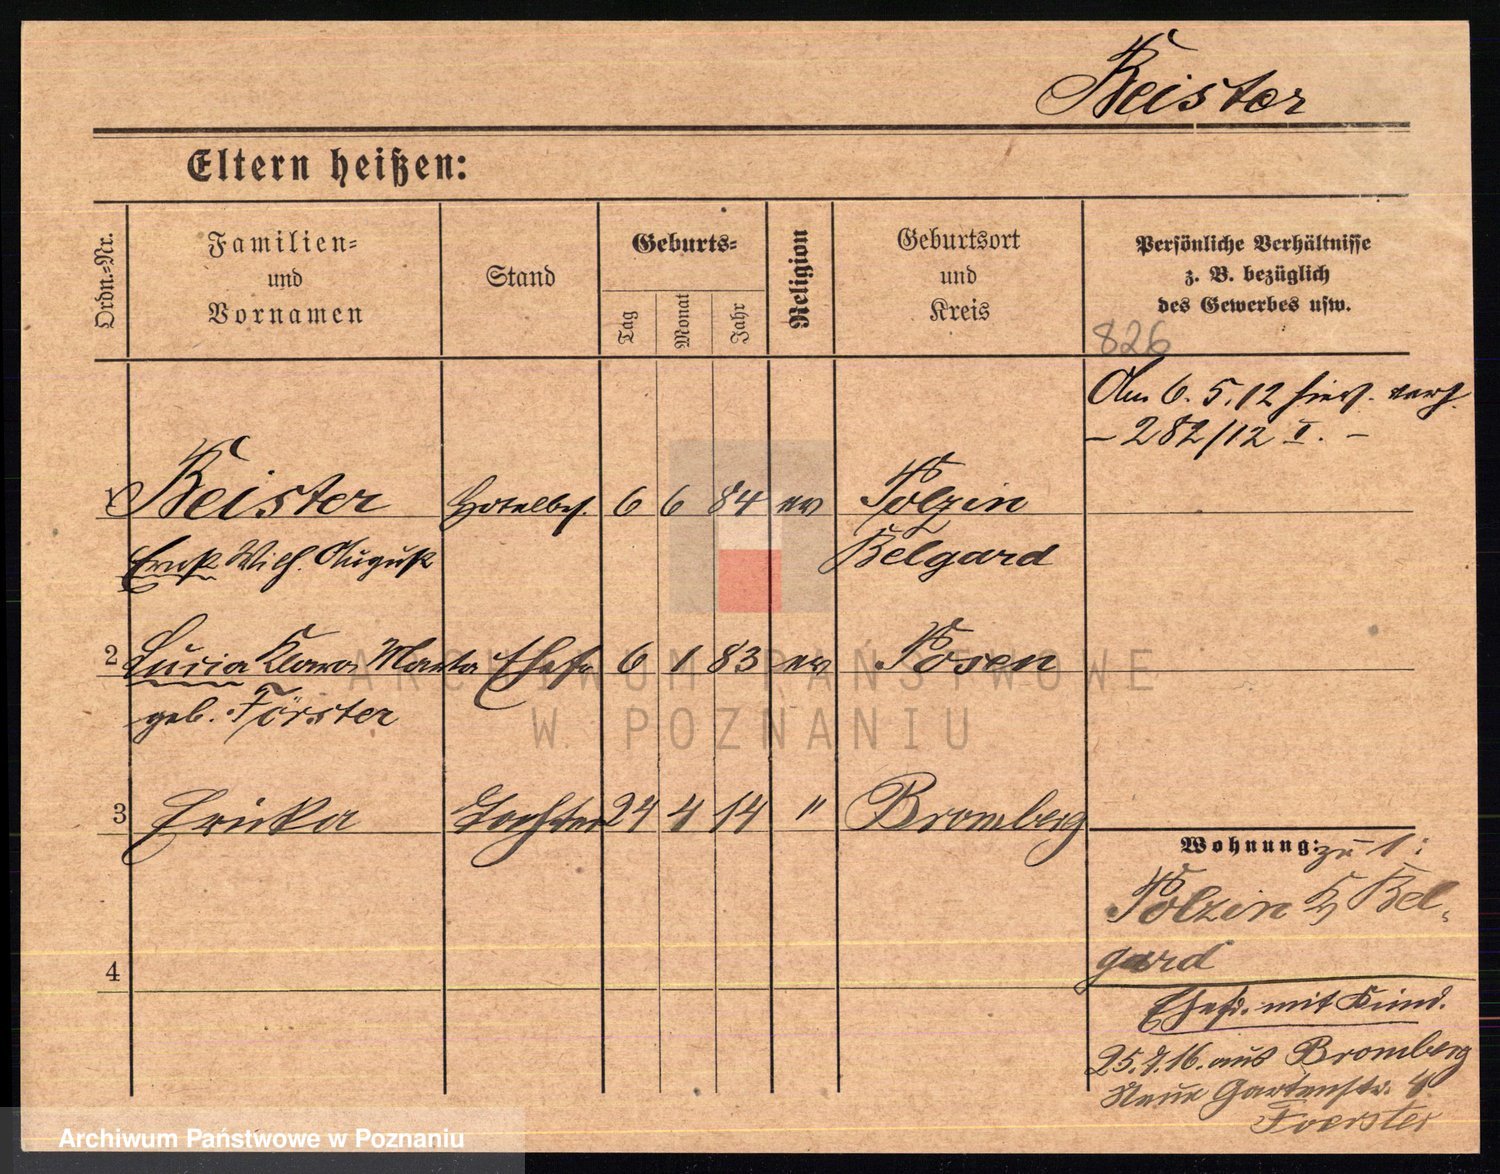 Keister
Eltern heißen:
Ordn.-Nr.
Familien-
und
Vornamen
Stand
Geburts-
Tag
Monat
Jahr
Religion
Geburtsort
und
Kreis
Persönliche Verhältnisse
z. B. bezüglich
des Gewerbes usw.
826
Am 6. 5. 12 hier verh.
– 282/12 I. –
1 Keister Hotelbes. 6 6 84 ev Polzin
Ernst Wilh. August Belgard
2 Lucia Klara Marta Ehefr 6 1 83 ev Posen
geb. Förster
3 Ericka Tochter 24 4 14 " Bromberg
Wohnung: zu 1:
Polzin Bel-
gard
4
Ehefr. mit Kind.
25. 7. 16. aus Bromberg
Neue Gartenstr. 4
Foerster
ARCHIWUM PAŃSTWOWE
W POZNANIU
Archiwum Państwowe w Poznaniu